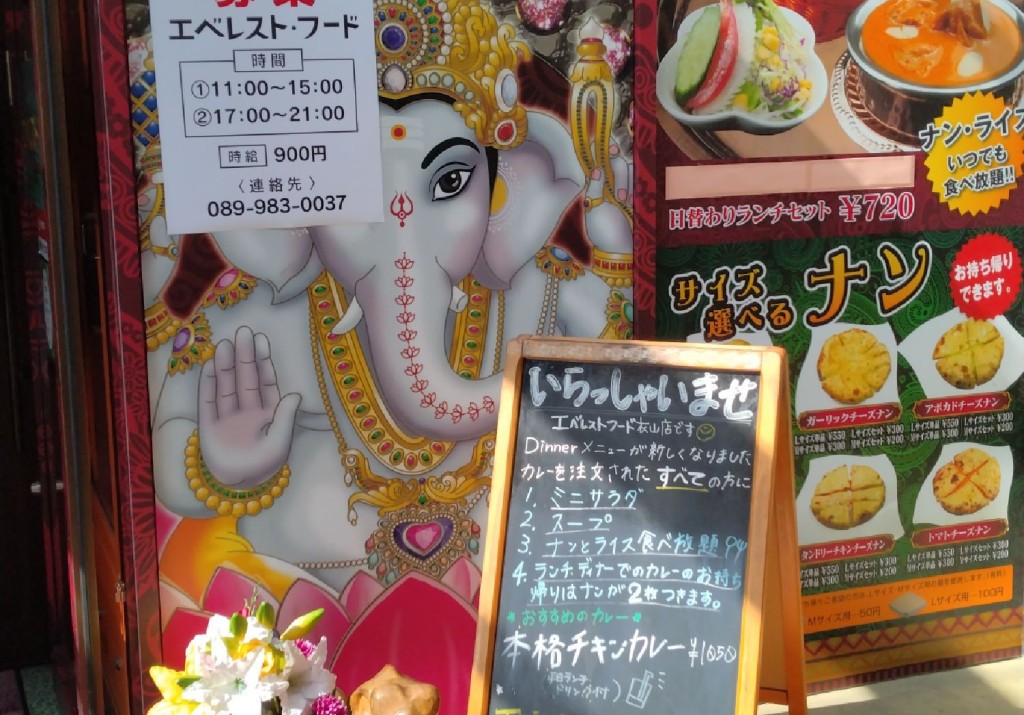 エベレスト・フード
時間
①11:00～15:00
②17:00～21:00
時給 900円
〈連絡先〉
089-983-0037
ナン・ライス
いつでも
食べ放題!!
日替わりランチセット ¥720
サイズ
選べる
ナン
お持ち帰り
できます。
ガーリックチーズナン
Lサイズ単品 ¥550 Lサイズセット ¥300
アボカドチーズナン
Lサイズ単品 ¥550 Lサイズセット ¥300
タンドリーチキンチーズナン
トマトチーズナン
Lサイズ単品 ¥550 Lサイズセット ¥300
Mサイズ用…50円
Lサイズ用…100円
いらっしゃいませ
エベレストフード衣山店です
Dinnerメニューが新しくなりました
カレーを注文された すべての方に
1. ミニサラダ
2. スープ
3. ナンとライス食べ放題
4. ランチ、ディナーでのカレーのお持ち
帰りはナンが2枚つきます。
おすすめのカレー
本格チキンカレー ¥1050
平日ランチ
ドリンク付